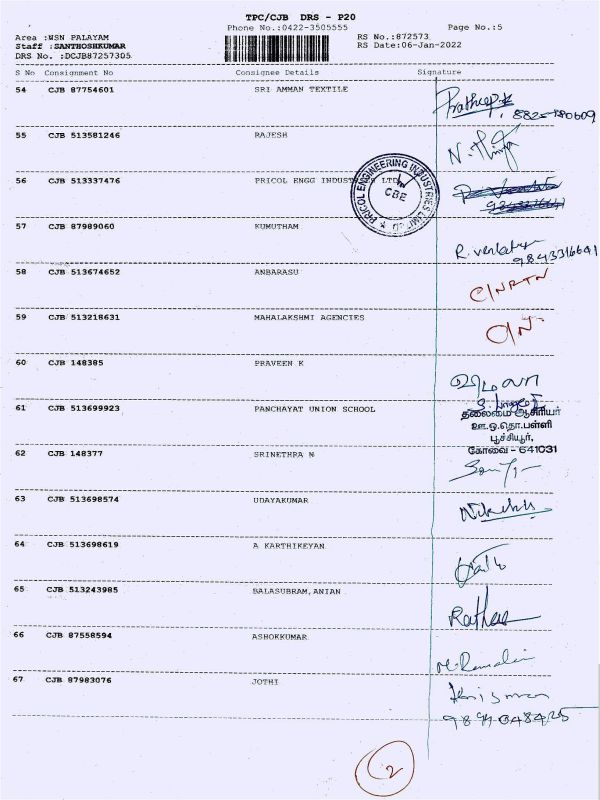 TPC/CJB DRS - P20
Phone No.:0422-3505555
Page No.:5
Area :WSN PALAYAM
RS No.:872573
Staff :SANTHOSHKUMAR
RS Date:06-Jan-2022
DRS No. :DCJB87257305
S No Consignment No Consignee Details Signature
54 CJB 87754601 SRI AMMAN TEXTILE
Pratheep.k
55 CJB 513581246 RAJESH
56 CJB 513337476 PRICOL ENGG INDUSTRIES LTD
PRICOL ENGINEERING INDUSTRIES LIMITED
CBE
57 CJB 87989060 KUMUTHAM
9843316641
58 CJB 513674652 ANBARASU
C/N RTN
59 CJB 513218631 MAHALAKSHMI AGENCIES
C/N
60 CJB 148385 PRAVEEN K
விமலா
61 CJB 513699923 PANCHAYAT UNION SCHOOL
தலைமை ஆசிரியர்
ஊ.ஒ.தொ.பள்ளி
பூச்சியூர்,
கோவை - 641031
62 CJB 148377 SRINETHRA N
63 CJB 513698574 UDAYAKUMAR
64 CJB 513698619 A KARTHIKEYAN
65 CJB 513243985 BALASUBRAM,ANIAN
66 CJB 87558594 ASHOKKUMAR
67 CJB 87983076 JOTHI
2